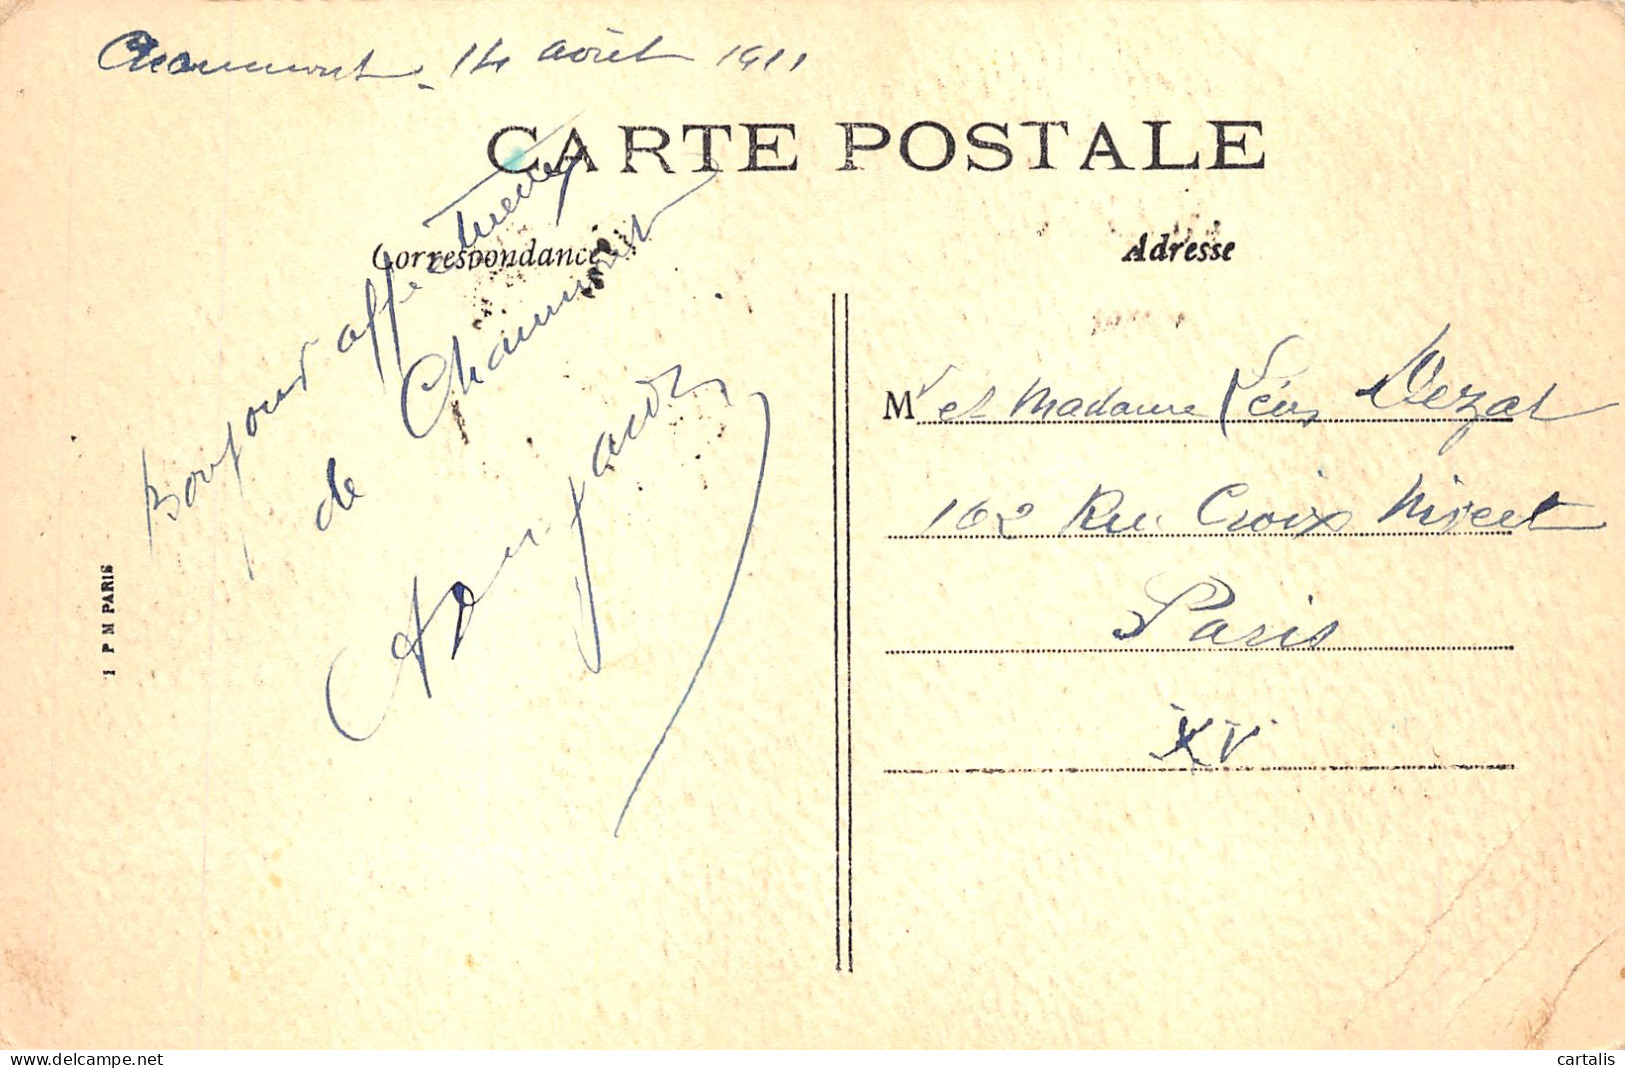 Chaumont, 14 août 1911
CARTE POSTALE
Correspondance
Adresse
Bonjour affectueux
de Chaumont
Mr et Madame Léon Dezat
162 Rue Croix Nivert
Paris
XV
I P M PARIS
delcampe.net
cartalis